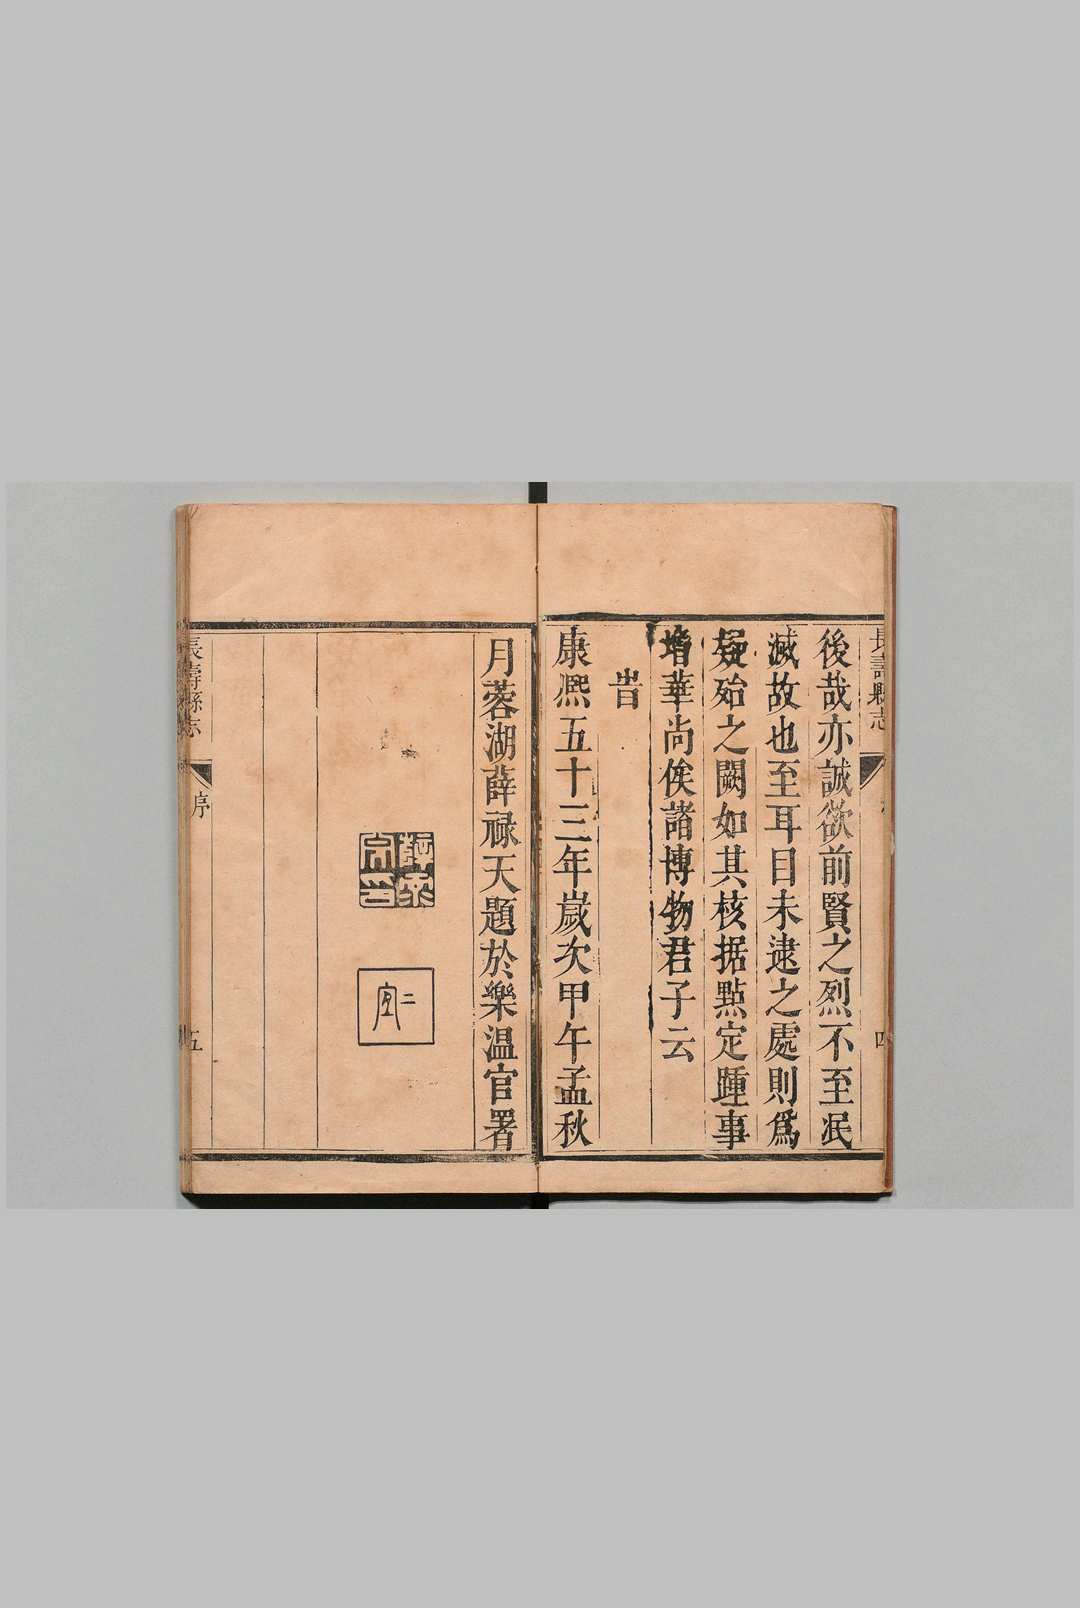 長壽縣志
四
後哉亦誠欲前賢之烈不至泯
滅故也至耳目未逮之處則爲
疑殆之闕如其核据點定踵事
增華尚俟諸博物君子云
旹
康熙五十三年歲次甲午孟秋
月蓉湖薛禄天題於樂温官署
長壽縣志
序
五